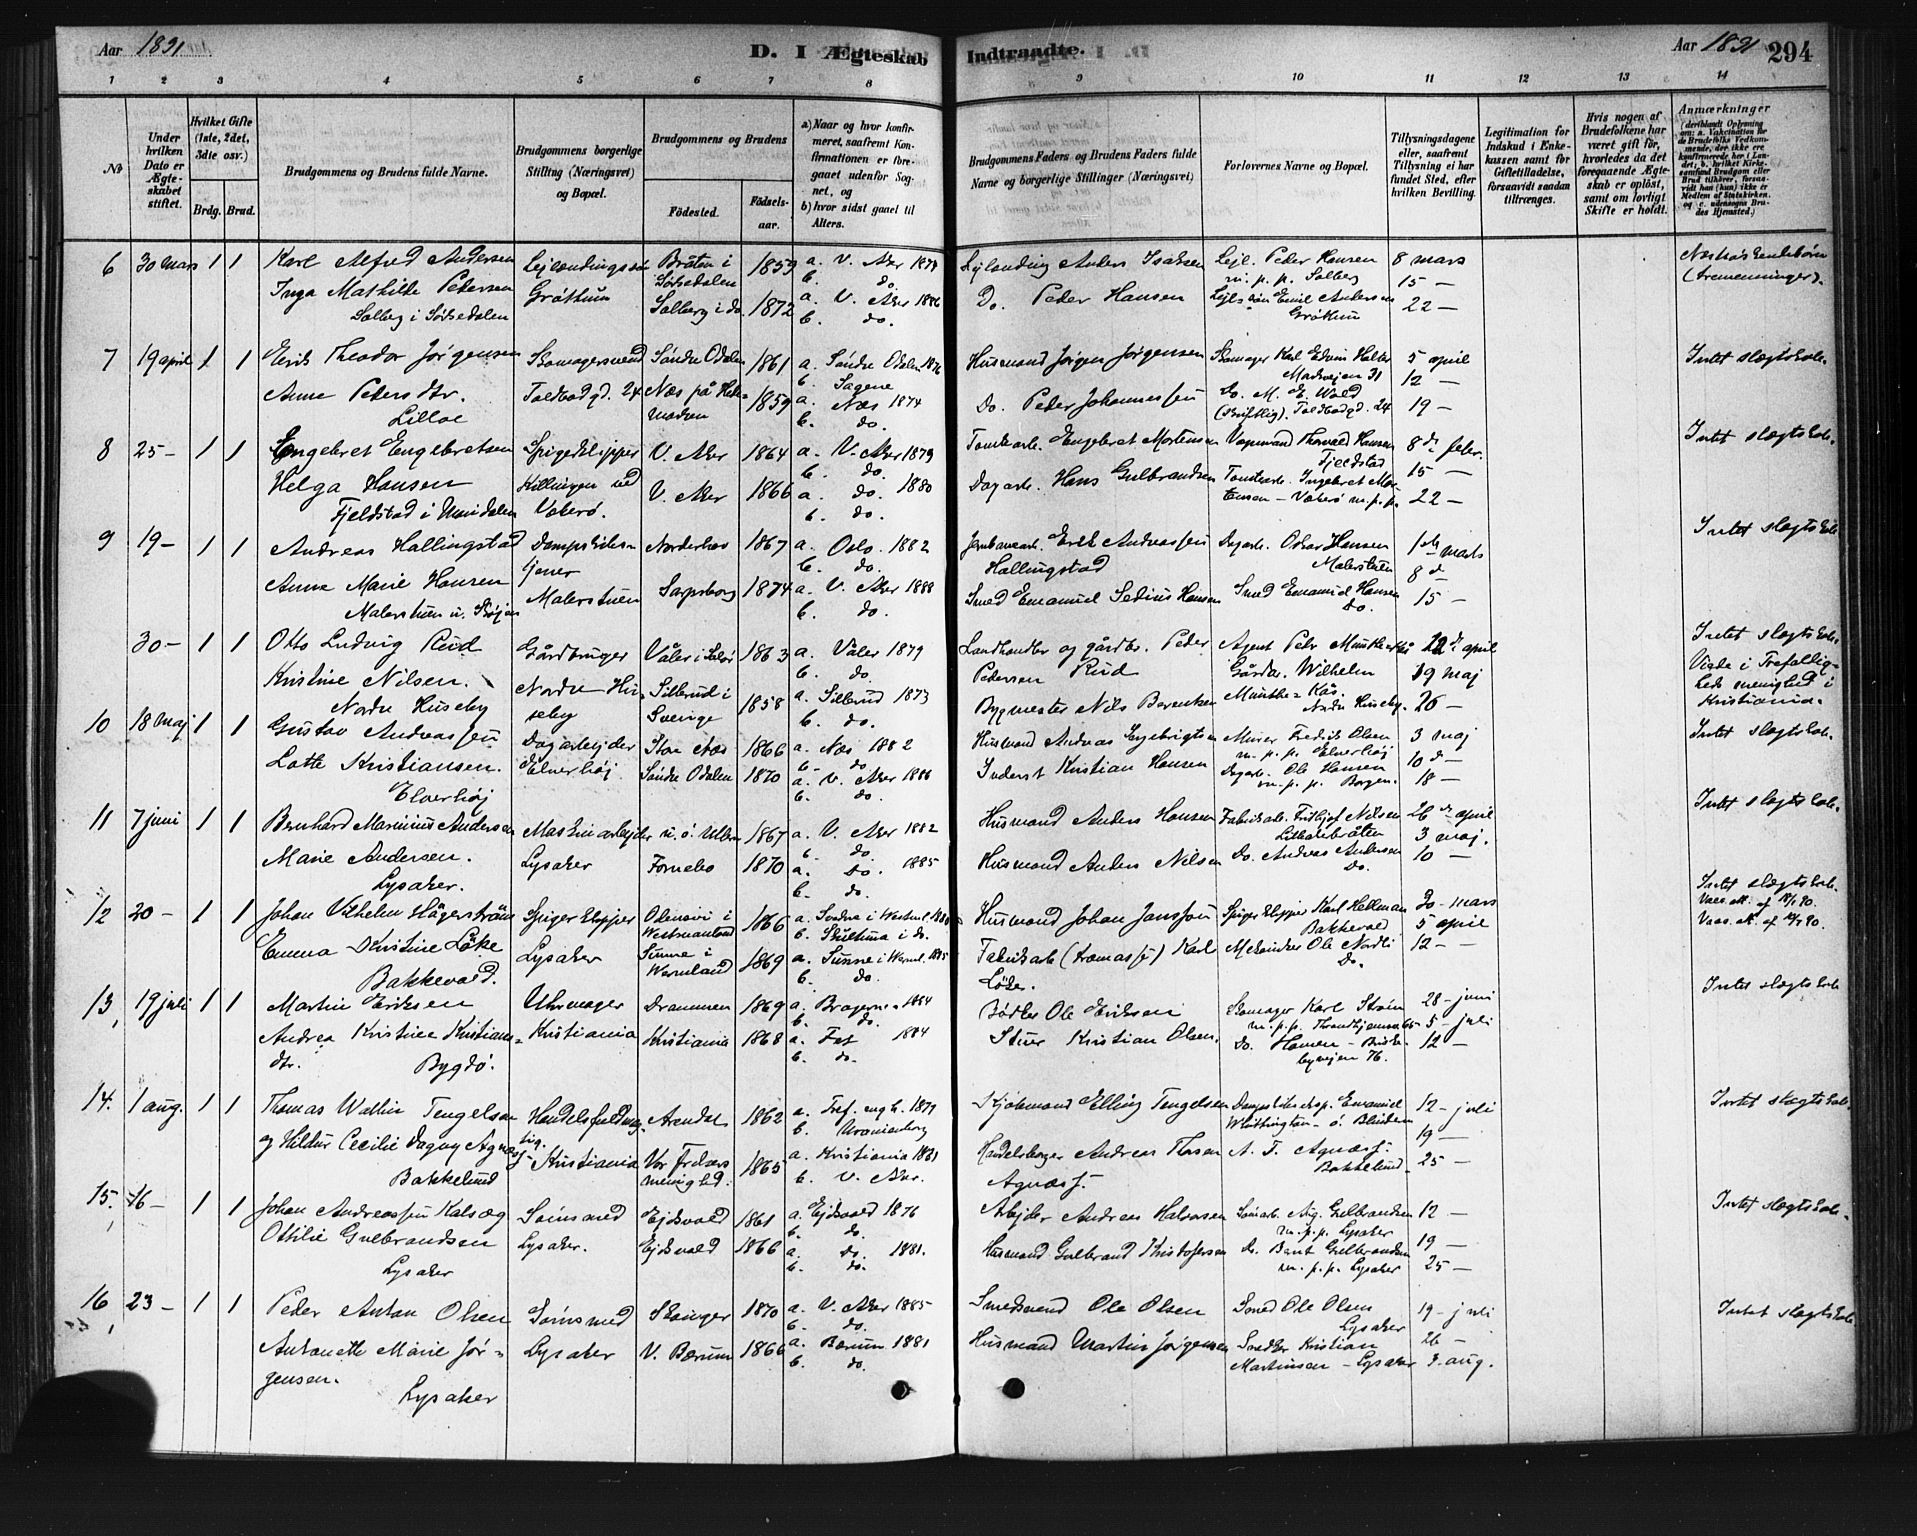 Aar 1891
D. I Ægteskab Indtraadte.
Aar 1891 294
1 2 3 4 5 6 7 8 9 10 11 12 13 14
No
Under hvilken Dato er Ægteskabet stiftet.
Hvilket Gifte (1ste, 2det, 3die osv.)
Brdg. Brud.
Brudgommens og Brudens fulde Navne.
Brudgommens borgerlige Stilling (Næringsvei) og Bopæl.
Brudgommens og Brudens
Fødested. Fødselsaar.
a) Naar og hvor konfirmeret, saafremt Konfirmationen er foregaaet udenfor Sognet, og
b) hvor sidst gaaet til Alters.
Brudgommens Faders og Brudens Faders fulde Navne og borgerlige Stillinger (Næringsvei)
Forlovernes Navne og Bopæl.
Tillysningsdagene eller, saafremt Tillysning ei har fundet Sted, efter hvilken Bevilling.
Legitimation for Indskud i Enkekassen samt for Giftetilladelse, forsaavidt saadan tiltrænges.
Hvis nogen af Brudefolkene har været gift før, hvorledes da det foregaaende Ægteskab er opløst, samt om lovligt Skifte er holdt.
Anmærkninger
6 30 mars 1 1 Karl Alfred Andersen
Inga Mathilde Pedersen
Solberg i Sørkedalen
Lejlændingsøn
Grøttum
Bråten i Sørkedalen 1859
Solberg i do. 1872
a. V. Aker 1874
b. do.
a. V. Aker 1886
b. do.
Lejlænding Anders Isaksen
Do. Peder Hansen
Lejl. Peder Hansen
m. p. p. Solberg
Lejls søn Emil Andersen
Grøttum
8 mars
15 —
22 —
Næstsøskendebørn
(Tremenninger).
7 19 april 1 1 Erik Theodor Jørgensen
Anne Peders dtr.
Lilloe
Skomagersvend
Toldbodgd. 24
Søndre Odalen 1861
Næs på Hedemarken 1859
a. Søndre Odalen 1876
b. Sagene
a. Næs 1874
b. do.
Husmand Jørgen Jørgensen
Do. Peder Johannessen
Skomager Karl Edvin Holter
31
Do. M. E. Wold
(skriftlig). Toldbodgd. 24
5 april
12 —
19 —
Intet slægtskab.
8 25 — 1 1 Engebret Engebretsen
Helga Hansen
Fjeldstad i Maridalen
Spigerklipper
Killingen ved
Vækerø.
V. Aker 1864
V. Aker 1866
a. V. Aker 1879
b. do.
a. do. 1880
b. do.
Tomtearb. Engebret Mortensen
Dagarb. Hans Gulbrandsen
Vognmand Thorvald Hansen
Fjeldstad
Tomtearb. Ingebret Mortensen — Vækerø m. p. p.
8de febr.
15 —
22 —
Intet slægtskab.
9 19 — 1 1 Andreas Hallingstad
Anne Marie Hansen
Malerstuen u. Skøjen
Dampkjøkentjener
Malerstuen
Norderhov 1867
Sarpsborg 1874
a. Oslo. 1882
b. do.
a. V. Aker 1888
b. do.
Jernbanearb. Erik Andreassen
Hallingstad
Smed Emanuel Sedius Hansen
Dagarb. Oskar Hansen
Malerstuen
Smed Emanuel Hansen
Do.
1ste mars
8 d —
15 —
Intet slægtskab
30 — 1 1 Otto Ludvig Rud
Kristine Nilsen.
Nordre Huseby
Gårdbruger
Nordre Huseby
Våler i Solør 1863
Sillerud i Sverige 1858
a. Våler 1879
b. do.
a. Sillerud 1873
b. do.
Landhandler og gårdbr. Peder
Pedersen Rud
Bygmester Nils Berentsen
Agent Peter Munthe
Gårdbr. Wilhelm
Munthe-Kås.
Nordre Huseby.
12 d april
19 maj
26 —
Intet slægtskab.
Viede i Trefoldigheds menighed i
Kristiania.
10 18 maj 1 1 Gustav Andreassen
Lotte Kristiansen.
Elverhøj
Dagarbejder
Elverhøj.
Store Næs 1866
Søndre Odalen 1870
a. Næs 1882
b. do
a. V. Aker 1886
b. do.
Husmand Andreas Ingebrigtsen
Inderst Kristian Hansen
Murer Fredrik Olsen
m. p. p. Elverhøj
Dagarb. Ole Hansen
m. p. p. Borgen.
3 maj
10 d —
18 —
Intet slægtskab.
11 7 juni 1 1 Bernhard Marinius Andersen
Marie Andersen.
Lysaker.
Maskinarbejder
Lysaker
n. ö. Ullern 1867
Fornebo 1870
a. V. Aker 1882
b. do.
a. Do. 1885
b. do.
Husmand Anders Hansen
Husmand Anders Nilsen
Fabrikarb. Fridtjof Nilsen
Lilleakerbråten
Do. Andreas Andersen
Do.
26 d april
3 maj.
10 —
Intet slægtskab.
12 20 — 1 1 Johan Vilhelm Hägerström
Emma Kristine Löke
Bakkevold.
Spigerklipper
Lysaker
Odensvi i Westmanland 1866
Sunne i Wermland 1869
b. Skultuna i do.
a. Sunne i Werml. 1885
b. do.
Husmand Johan Jansson
Fabrikarb. Karl
Löke.
Spigerklipper Karl Hellman
Bakkevold
Mekaniker Ole Nordli
Do.
30 — mars
5 april
12 —
Intet slægtskab.
13 19 juli 1 1 Martin Eriksen
Andrea Kristine Kristiansdtr. Bygdø.
Uhrmager
Kristiania
Drammen 1869
Kristiania 1868
a. Bragernes 1884
b. do.
a. Fet 1884
b. do.
Bødker Ole Eriksen
Stuer Kristian Olsen.
Skomager Karl Strøm
m. p. p. Throndhjemsv. 66
Do. Hansen — Briskebyvejen 76.
28 — juni
5 — juli
12 —
Intet slægtskab
14. 1 aug. 1 1 Thomas Wattin Tengelsen
og Hildur Cecilie Dagny Agnæss
Bakkelund
Handelsfuldmægtig.
Kristiania
Arendal 1862
Vor Frelsers menighed. 1865
a. Tref. engh. 1879
b. Uranienborg
a. Kristiania 1881
b. V. Aker.
Kjøbmand Elling Tengelsen
Handelsborger Andreas Thorsen
Agnæss.
Dampskibsexp. Emanuel
Whittington — ö. Blindern
A. T. Agnæss.
Bakkelund
12 — juli
19 —
25 —
Intet slægtskab.
15. 16 — 1 1 Johan Andreassen Kalsæg
Ottilie Gulbrandsen
Lysaker
Sømsmed
Lysaker.
Ejdsvold 1861
Ejdsvold 1866
a. Ejdsvold 1876
b. do.
a. Do. 1881.
b. do.
Arbejder Andreas Halvorsen
Husmand Gulbrand Kristofersen
Sømarb. Aug. Gulbrandsen
m. p. p. Lysaker
Do. Bernt Gulbrandsen
m. p. p. Lysaker
12 —
19 —
25 —
Intet slægtskab.
16 23 — 1 1 Peder Anton Olsen
Antonette Marie Jørgensen.
Lysaker
Sømsmed
Lysaker
Skonger 1870
V. Bærum 1866
a. V. Aker 1885
b. do.
a. Bærum 1881
b. do.
Smedsvend Ole Olsen
Husmand Martin Jørgensen
Smed Ole Olsen
Lysaker
Snedker Kristian
Martinsen — Lysaker
19 — juli
26 —
2. aug.
Intet slægtskab.